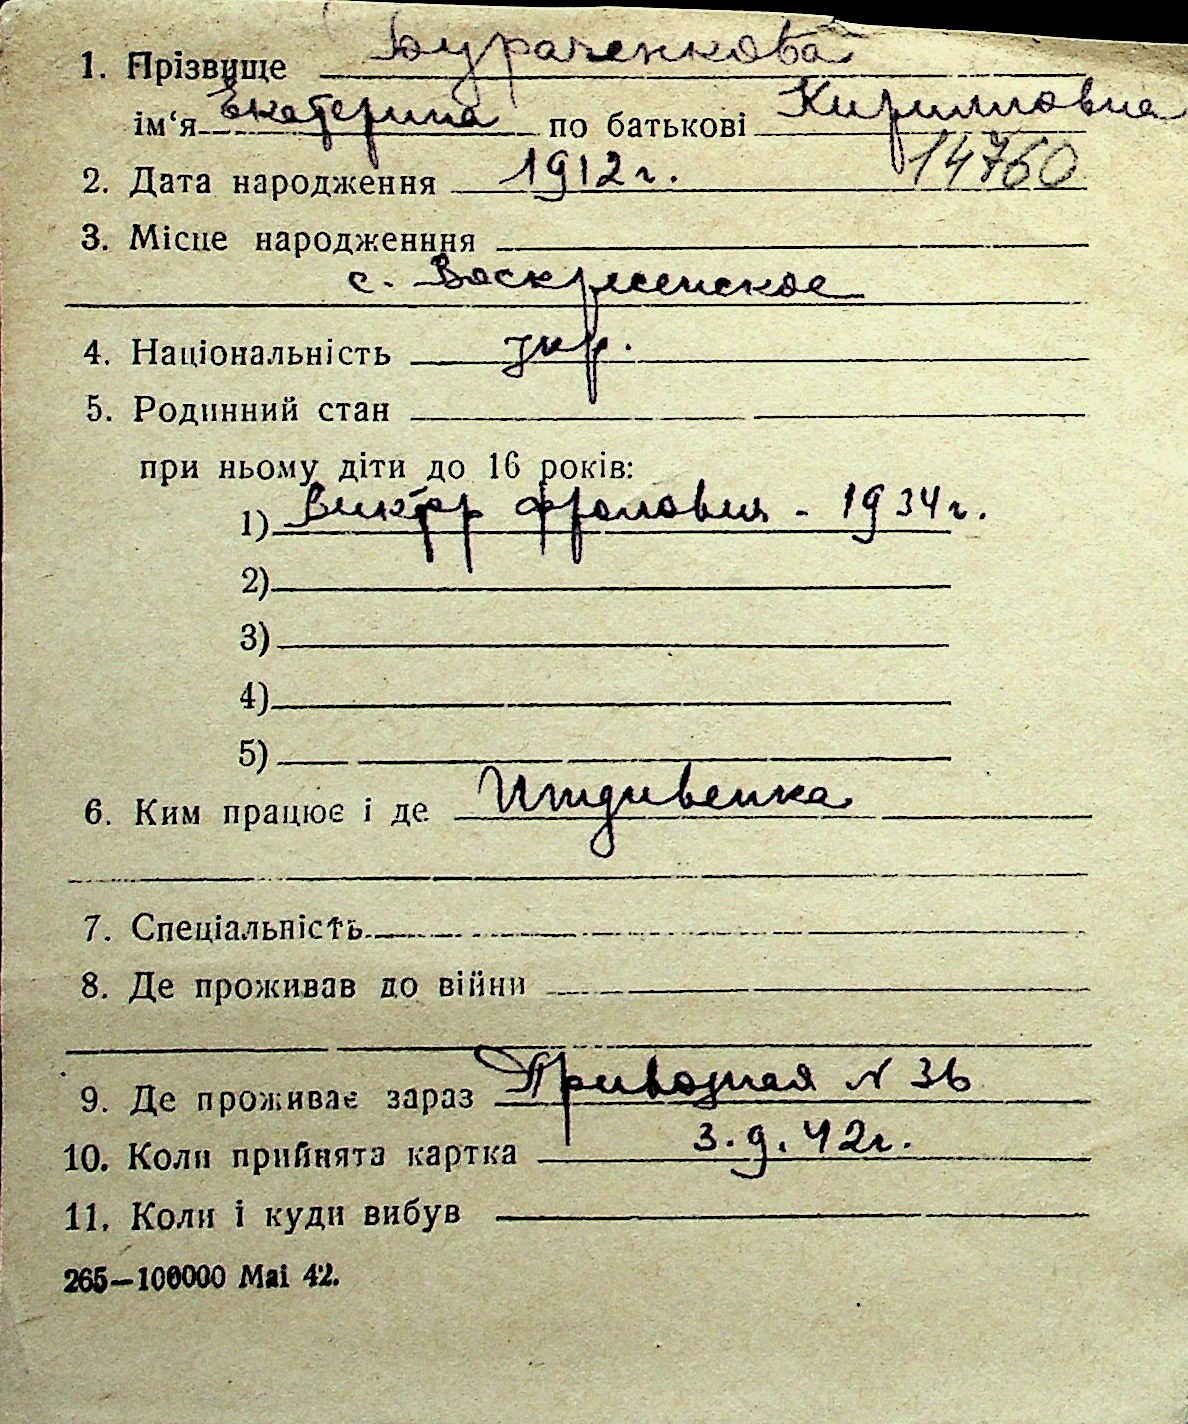 1. Прізвище Бураченкова
ім‘я Екатерина по батькові Кирилловна
14760
2. Дата народження 1912 г.
3. Місце народженння
с. Воскресенское
4. Національність укр.
5. Родинний стан
при ньому діти до 16 років:
1) Виктор Фролович - 1934 г.
2)
3)
4)
5)
6. Ким працює і де Иждивенка
7. Спеціальність
8. Де проживав до війни
9. Де проживає зараз Приводная N 36
10. Коли прийнята картка 3.9.42 г.
11. Коли і куди вибув
265—100000 Mai 42.